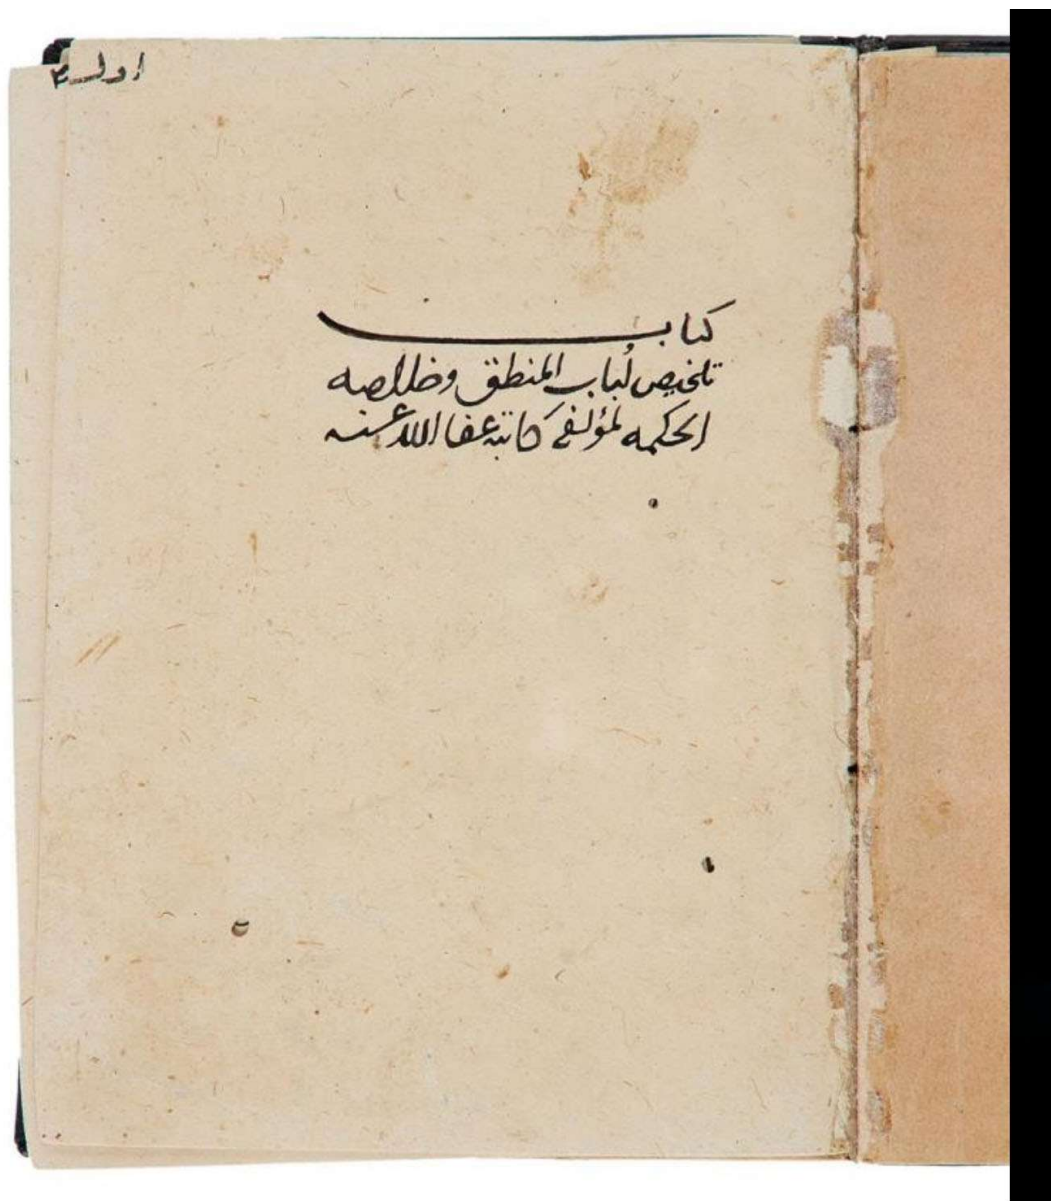 كتاب
تلخيص لُباب المنطق وخلاصه
الحكمه لمؤلفه كاتبه عفا الله عنه